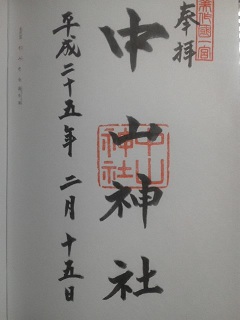 奉拝
美作國一宮
中山神社
中山神社
平成二十五年 二月 十五日